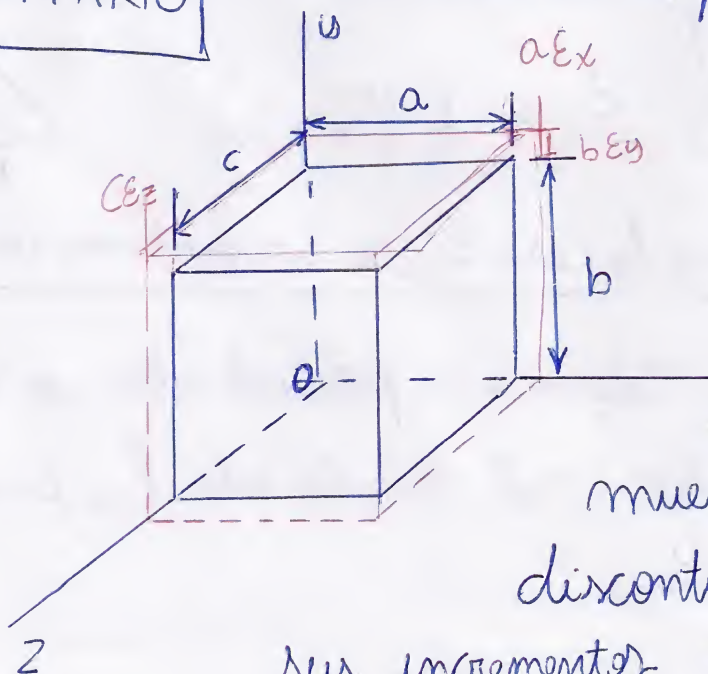 y
aεx
a
c
bεy
cεz
b
O
discont
sus incrementos
Z